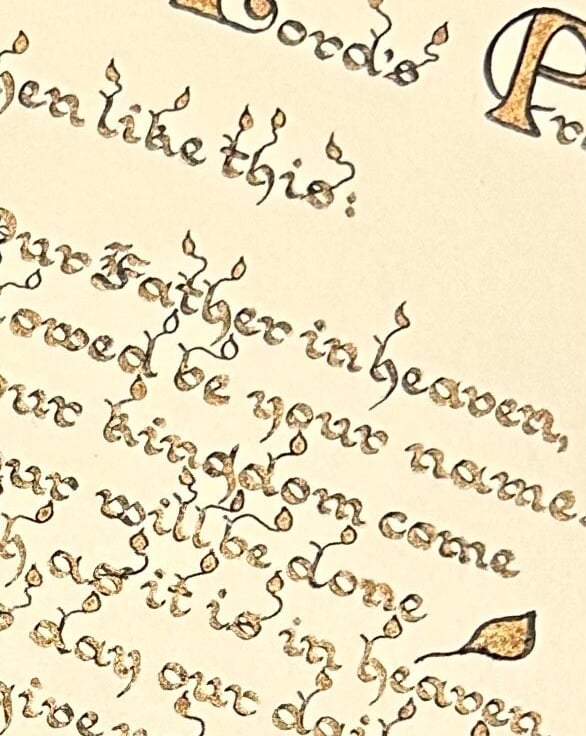 Lord's Pr
en like this:
Our Father in heaven,
owed be your name.
ur kingdom come
ur will be done
h as it is in heaven
day our dai
given